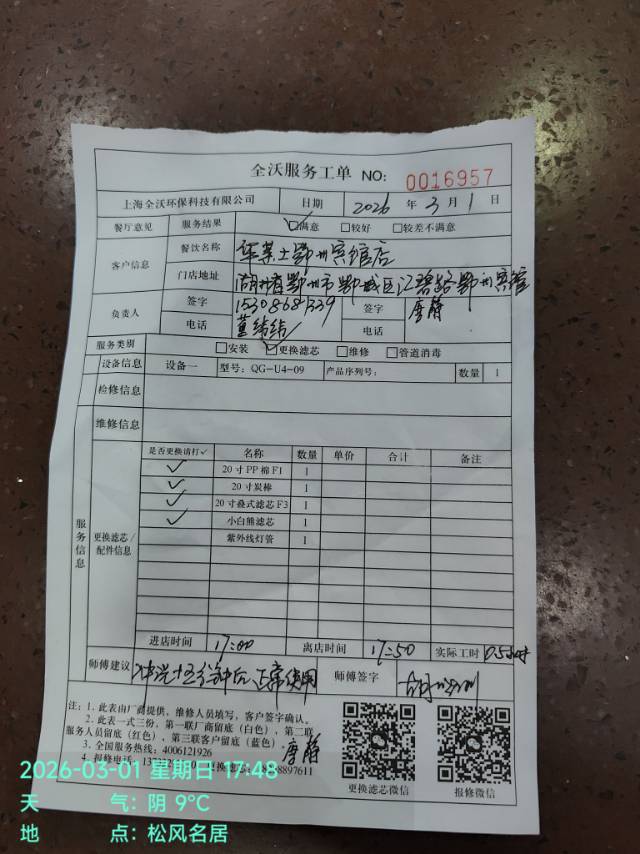 全沃服务工单 NO: 0016957
上海全沃环保科技有限公司 日期 2026 年 3 月 1 日
餐厅意见 服务结果 ☑满意 □较好 □较差不满意
客户信息 餐饮名称 华莱士鄂州宾馆店
门店地址 湖北省鄂州市鄂城区江碧路鄂州宾馆
负责人 签字 15308681339 签字 唐静
电话 电话
服务类别 □安装 ☑更换滤芯 □维修 □管道消毒
设备信息 设备一 型号: QG-U4-09 产品序列号: 数量 1
检修信息
维修信息
服务信息
更换滤芯/配件信息
是否更换请打✓ 名称 数量 单价 合计 备注
✓ 20寸PP棉F1 1
✓ 20寸炭棒 1
✓ 20寸叠式滤芯F3 1
✓ 小白熊滤芯 1
紫外线灯管 1
进店时间 17:00 离店时间 17:50 实际工时 0.5小时
师傅建议 冲洗十五分钟后正常使用 师傅签字
注: 1. 此表由厂商提供, 维修人员填写, 客户签字确认。
2. 此表一式三份, 第一联厂商留底（白色）, 第二联
服务人员留底（红色）, 第三联客户留底（蓝色）.
3. 全国服务热线: 4006121926
唐静
4. 报修电话:
更换滤芯微信 报修微信
2026-03-01 星期日 17:48
天 气: 阴 9℃
地 点: 松风名居